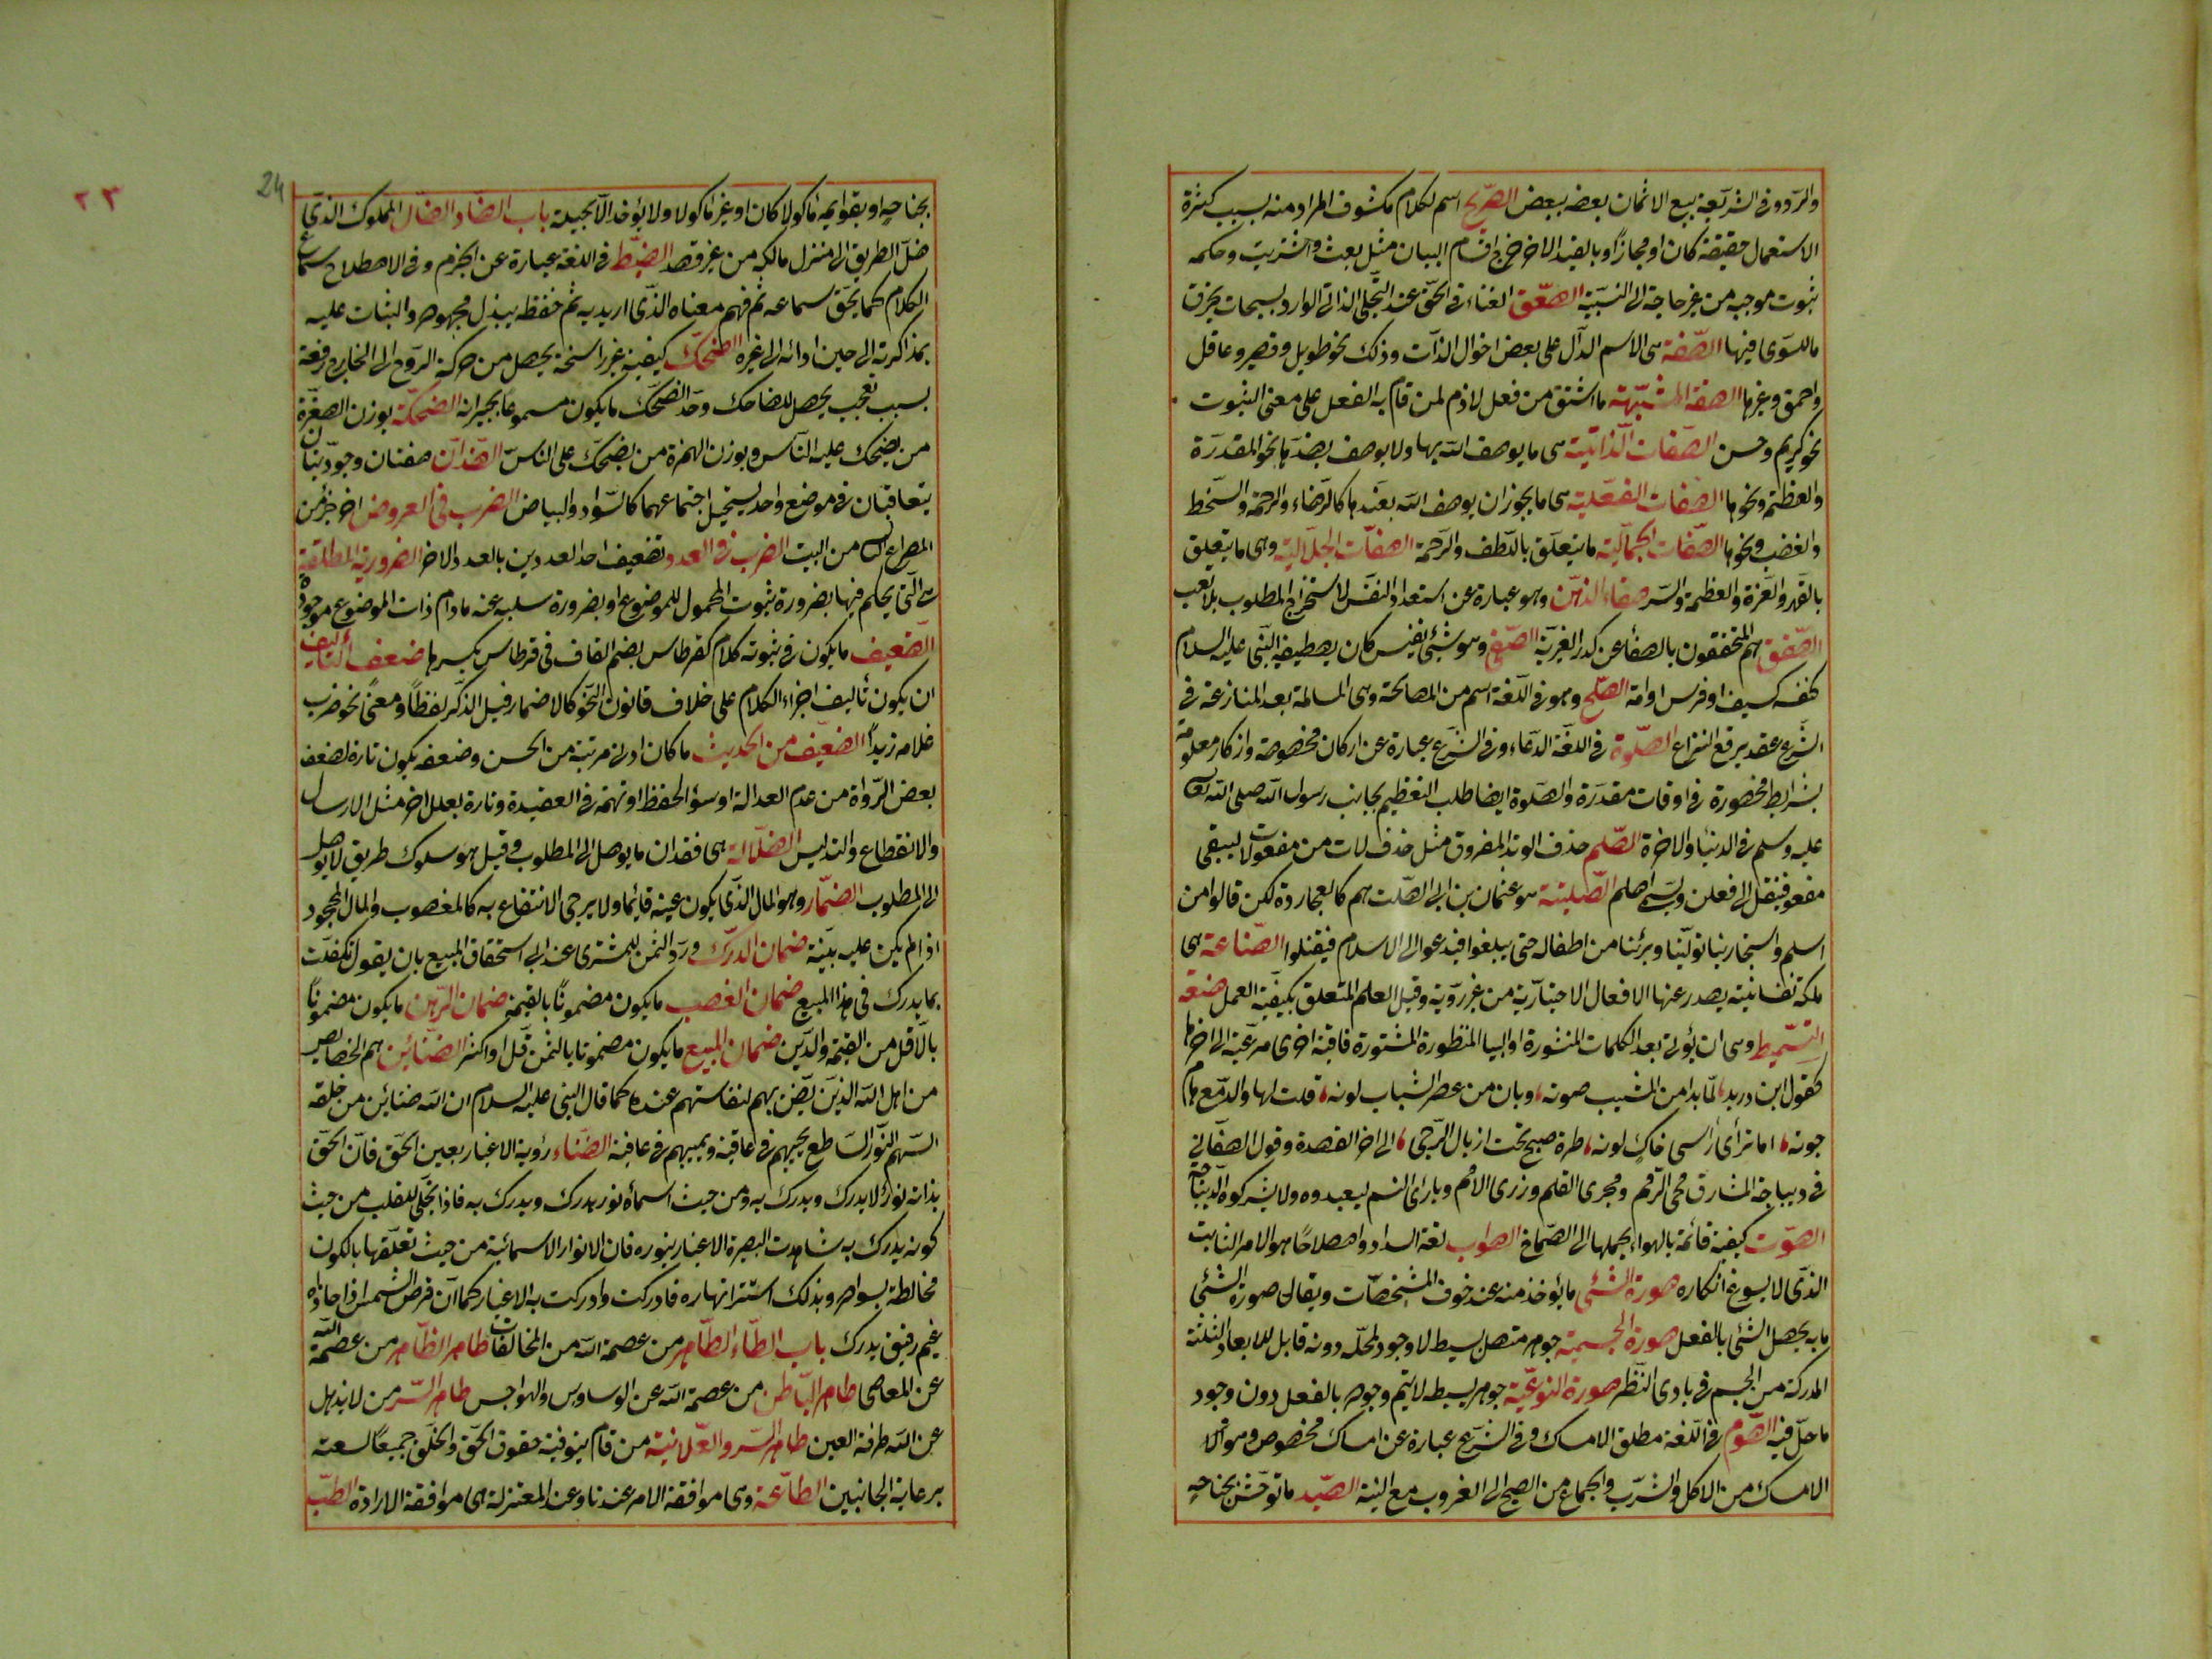 والرد وفى الشريعة بيع الاثمان بعضه ببعض الصريح اسم لكلام مكشوف المراد منه بسبب كثرة
الاستعمال حقيقة كان او مجازا وبالقيد الاخر خرج اقسام البيان مثل بعت واشتريت وحكمه
ثبوت موجبه من غير حاجة الى النية الصعق الفناء فى الحق عند التجلى الذاتى الوارد بسبحات يحترق
ما السوى فيها الصفة هى الاسم الدال على بعض احوال الذات وذلك نحو طويل وقصير وعاقل
واحمق وغيرها الصفة المشبهة ما اشتق من فعل لازم لمن قام به الفعل على معنى الثبوت
نحو كريم وحسن الصفات الذاتية هى ما يوصف الله بها ولا يوصف بضدها نحو القدرة
والعظمة ونحوها الصفات الفعلية هى ما يجوز ان يوصف الله بضدها كالرضاء والرحمة والسخط
والغضب ونحوها الصفات الجمالية ما يتعلق باللطف والرحمة الصفات الجلالية وهى ما يتعلق
بالقهر والعزة والعظمة والستر صفاء الذهن وهو عبارة عن استعداد النفس لاستخراج المطلوب بلا تعب
الصفق هم المتحققون بالصفا عن كدر الغيرية الصفى وهو شئ نفيس كان يصطفيه النبى عليه السلام
لنفسه كسيف او فرس او امة الصلح وهو فى اللغة اسم من المصالحة وهى المسالمة بعد المنازعة فى
الشرع عقد يرفع النزاع الصلوة فى اللغة الدعاء وفى الشرع عبارة عن اركان مخصوصة واذكار معلومة
بشرايط محصورة فى اوقات مقدرة والصلوة ايضا طلب التعظيم لجانب رسول الله صلى الله
عليه وسلم فى الدنيا والاخرة الصلم حذف الوتد المفروق مثل حذف لات من مفعولات ليبقى
مفعو فينقل الى فعلن ويسمى اصلم الصلتية هو عثمان بن ابى الصلت هم كالعجاردة لكن قالوا من
اسلم واستجار بنا تولينا وبرئنا من اطفاله حتى يبلغوا فيدعوا الى الاسلام فيقبلوا الصناعة هى
ملكة نفسانية يصدر عنها الافعال الاختيارية من غير روية وقيل العلم المتعلق بكيفية العمل صنعة
التسميط وهى ان يؤتى بعد الكلمات المنثورة او ابيات المنظورة المشتورة قافية اخرى مرعية الى اخرها
كقول ابن دريد لما بدا من المشيب صونه وبان من عصر الشباب لونه قلت لها والدمع هام
جونه اما ترى رأسى حاك لونه طرة صبح تحت اذيال الدجى الى اخر القصدة وقول الصغانى
فى ديباجة المشارق محى الرمم ومجرى القلم وزرى الامم وبارئ النسم ليعبدوه ولا يشركوه الدنيا
الصوت كيفية قائمة بالهواء يحملها الى الصماخ الصواب لغة السداد واصطلاحا هو الامر الثابت
الذى لا يسوغ انكاره صورة الشئ ما يؤخذ منه عند حذف المشخصات ويقال صورة الشئ
ما به يحصل الشئ بالفعل صورة الجسمية جوهر متصل بسيط لا وجود لمحله دونه قابل للابعاد الثلثة
المدركة من الجسم فى بادى النظر صورة النوعية جوهر بسيط لا يتم وجوده بالفعل دون وجود
ما حل فيه الصوم فى اللغة مطلق الامساك وفى الشرع عبارة عن امساك مخصوص وهو
الامساك من الاكل والشرب والجماع من الصبح الى الغروب مع النية الصيد ما توحش بجناحه
24
٢٣
بجناحه او بقوايمه ماكولا كان او غير ماكولا ولا يؤخذ الا بحيلة باب الضاد الضال المملوك الذى
ضل الطريق الى منزل مالكه من غير قصد الضبط فى اللغة عبارة عن الجزم وفى الاصطلاح سماع
الكلام كما يحق سماعه ثم فهم معناه الذى اريد به ثم حفظه ببذل مجهوده والثبات عليه
بمذاكرته الى حين ادائه الى غيره الضحك كيفية غير راسخة يحصل من حركة الروح الى الخارج دفعة
بسبب تعجب يحصل للضاحك وحد الضحك ما يكون مسموعا لجيرانه الضحكة بوزن الصغرة
من يضحك عليه الناس وبوزن الهمزة من يضحك على الناس الضدان صفتان وجوديتان
يتعاقبان فى موضع واحد يستحيل اجتماعهما كالسواد والبياض الضرب فى العروض اخر جزء من
المصراع الثانى من البيت الضرب فى العدد تضعيف احد العددين بالعدد الاخر الضرورية المطلقة
هى التى يحكم فيها بضرورة ثبوت المحمول للموضوع او بضرورة سلبه عنه ما دام ذات الموضوع موجودة
الضعيف ما يكون فى ثبوته كلام كقرطاس بضم القاف فى قرطاس بكسرها ضعف التأليف
ان يكون تأليف اجزاء الكلام على خلاف قانون النحو كالاضمار قبل الذكر لفظا ومعنى نحو ضرب
غلامه زيدا الضعيف من الحديث ما كان ادنى مرتبة من الحسن وضعفه يكون تارة لضعف
بعض الرواة من عدم العدالة او سؤ الحفظ او تهمة فى العقيدة وتارة بعلل اخر مثل الارسال
والانقطاع والتدليس الضلالة هى فقدان ما يوصل الى المطلوب وقيل هو سلوك طريق لا يوصل
الى المطلوب الضمار وهو المال الذى يكون عينه قائما ولا يرجى الانتفاع به كالمغصوب والمال المجحود
اذا لم يكن عليه بينة ضمان الدرك ورد الثمن للمشترى عند استحقاق المبيع بان يقول تكفلت
بما يدرك فى هذا المبيع ضمان الغصب ما يكون مضمونا بالقيمة ضمان الرهن ما يكون مضمونا
بالاقل من القيمة والدين ضمان المبيع ما يكون مضمونا بالثمن قل او اكثر الضنائن هم الخصايص
من اهل الله الذين يضن بهم لنفاستهم عنده كما قال النبى عليه السلام ان الله ضنائن من خلقه
البسهم النور الساطع يحييهم فى عافية ويميتهم فى عافية الضناء رؤية الاغيار بعين الحق فان الحق
بذاته نور لا يدرك ويدرك به ومن حيث اسماؤه نور يدرك ويدرك به فاذا تجلى للقلب من حيث
كونه يدرك به شاهدت البصيرة الاغيار بنوره فان الانوار الاسمائية من حيث تعلقها بالكون
مخالطة بسواده وبذلك استتر انهاره فادركت وادركت به الاغيار كما ان قرص الشمس اذا حاذاه
غيم رقيق يدرك باب الطاء الطاهر من عصمه الله من المخالفات طاهر الظاهر من عصمه الله
عن المعاصى طاهر الباطن من عصمه الله عن الوساوس والهواجس طاهر السر من لا يذهل
عن الله طرفة العين طاهر السر والعلانية من قام بتوفية حقوق الحق والخلق جميعا لسعته
برعاية الجانبين الطاعة وهى موافقة الامر عندنا وعند المعتزلة هى موافقة الارادة الطب